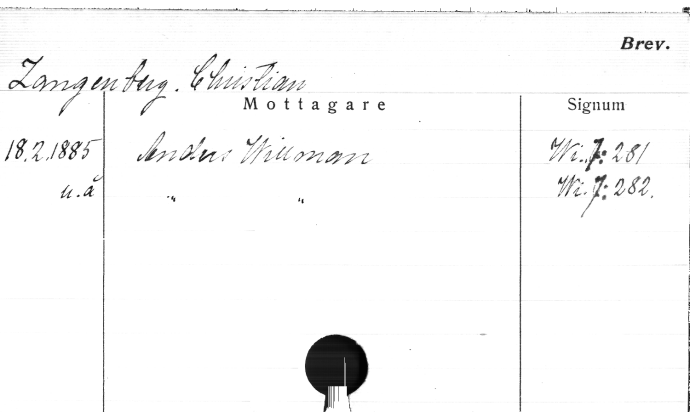 Brev.
Zangenberg, Christian
Mottagare Signum
18.2.1885 Anders Willman Wi. 7: 281
u.å " " Wi. 7: 282.